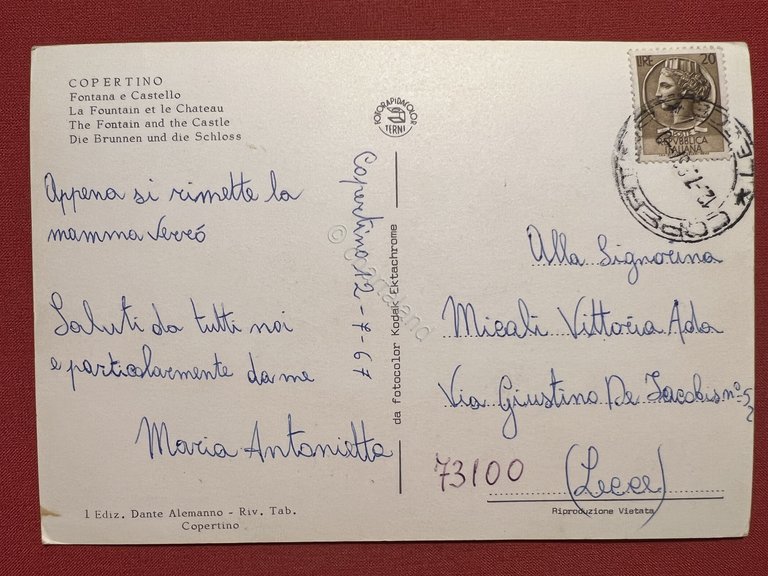 COPERTINO
Fontana e Castello
La Fountain et le Chateau
The Fontain and the Castle
Die Brunnen und die Schloss
Appena si rimette la
mamma verró
Saluti da tutti noi
e particolarmente da me
Maria Antonietta
1 Ediz. Dante Alemanno - Riv. Tab.
Copertino
FOTORAPIDACOLOR
TERNI
Copertino 12-7-67
da fotocolor Kodak Ektachrome
LIRE 20
REPUBBLICA
ITALIANA
COPERTINO
Alla Signorina
Micali Vittoria Ada
Via Giustino De Jacobis nº 52
73100 (Lecce)
Riproduzione Vietata